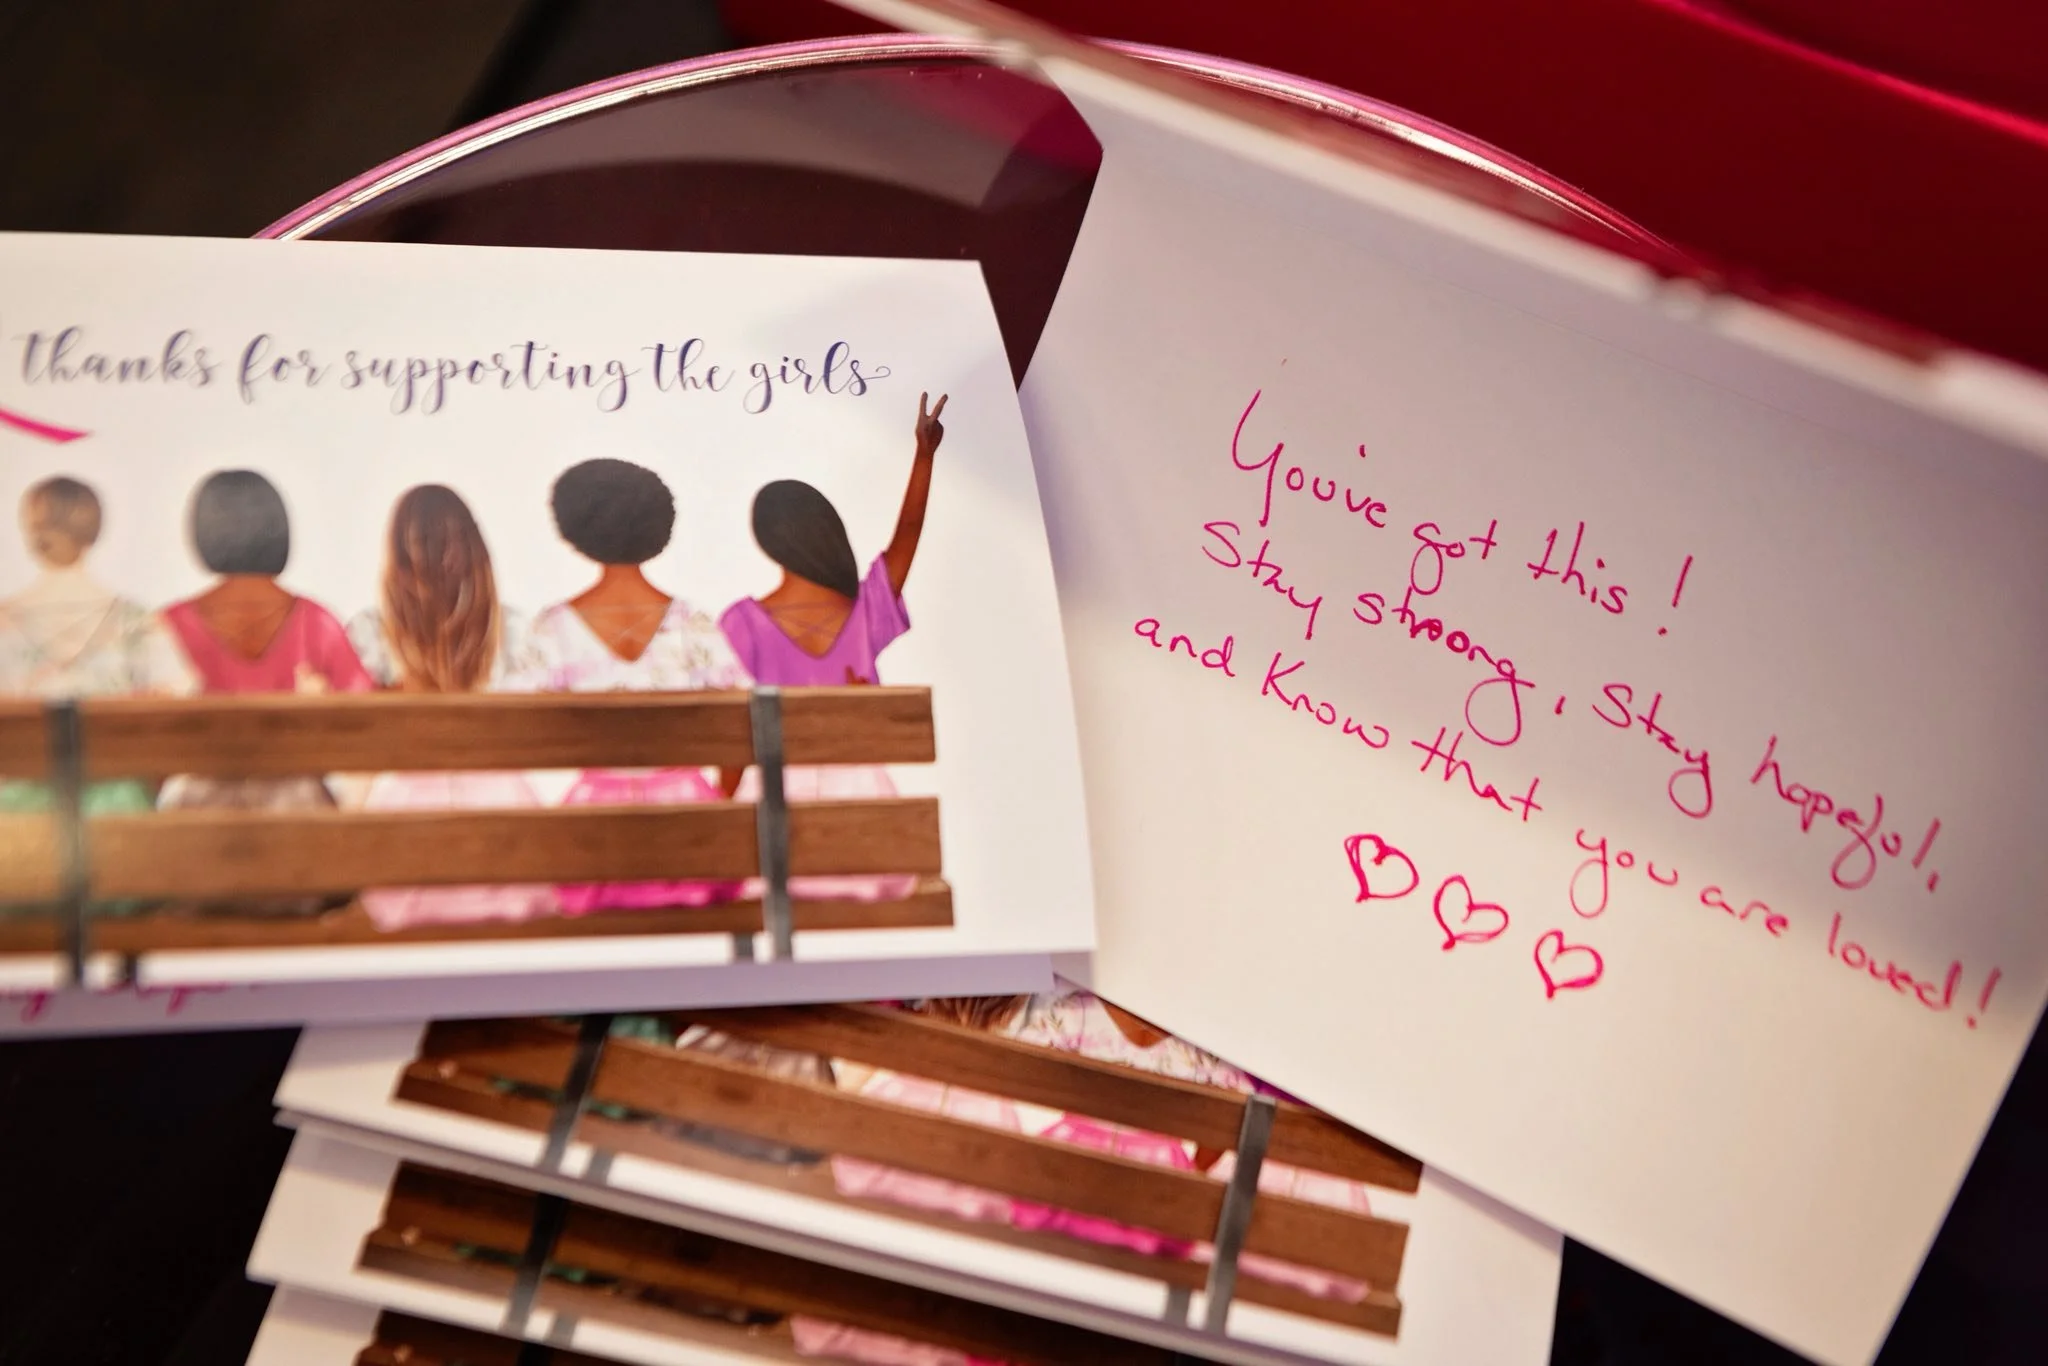 thanks for supporting the girls
You've got this!
Stay strong, Stay hopeful,
and Know that you are loved!